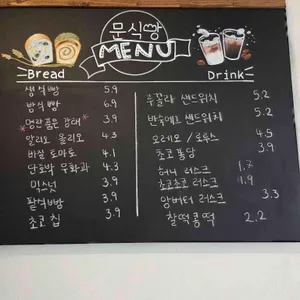 문식빵
MENU
Bread
Drink
생식빵 5.9
밤식빵 6.9
명란품은 감태 3.9
알리오 올리오 4.3
바질 토마토 4.1
단호박 무화과 4.3
믹스넛 3.9
팥식빵 3.9
초코 칩 3.9
루꼴라 샌드위치 5.2
반숙에그 샌드위치 5.2
오레오 / 로투스 4.5
초코 퐁당 3.9
허니 러스크 1.7
초코초코 러스크 1.9
앙버터 러스크 3.3
찰떡콩떡 2.2